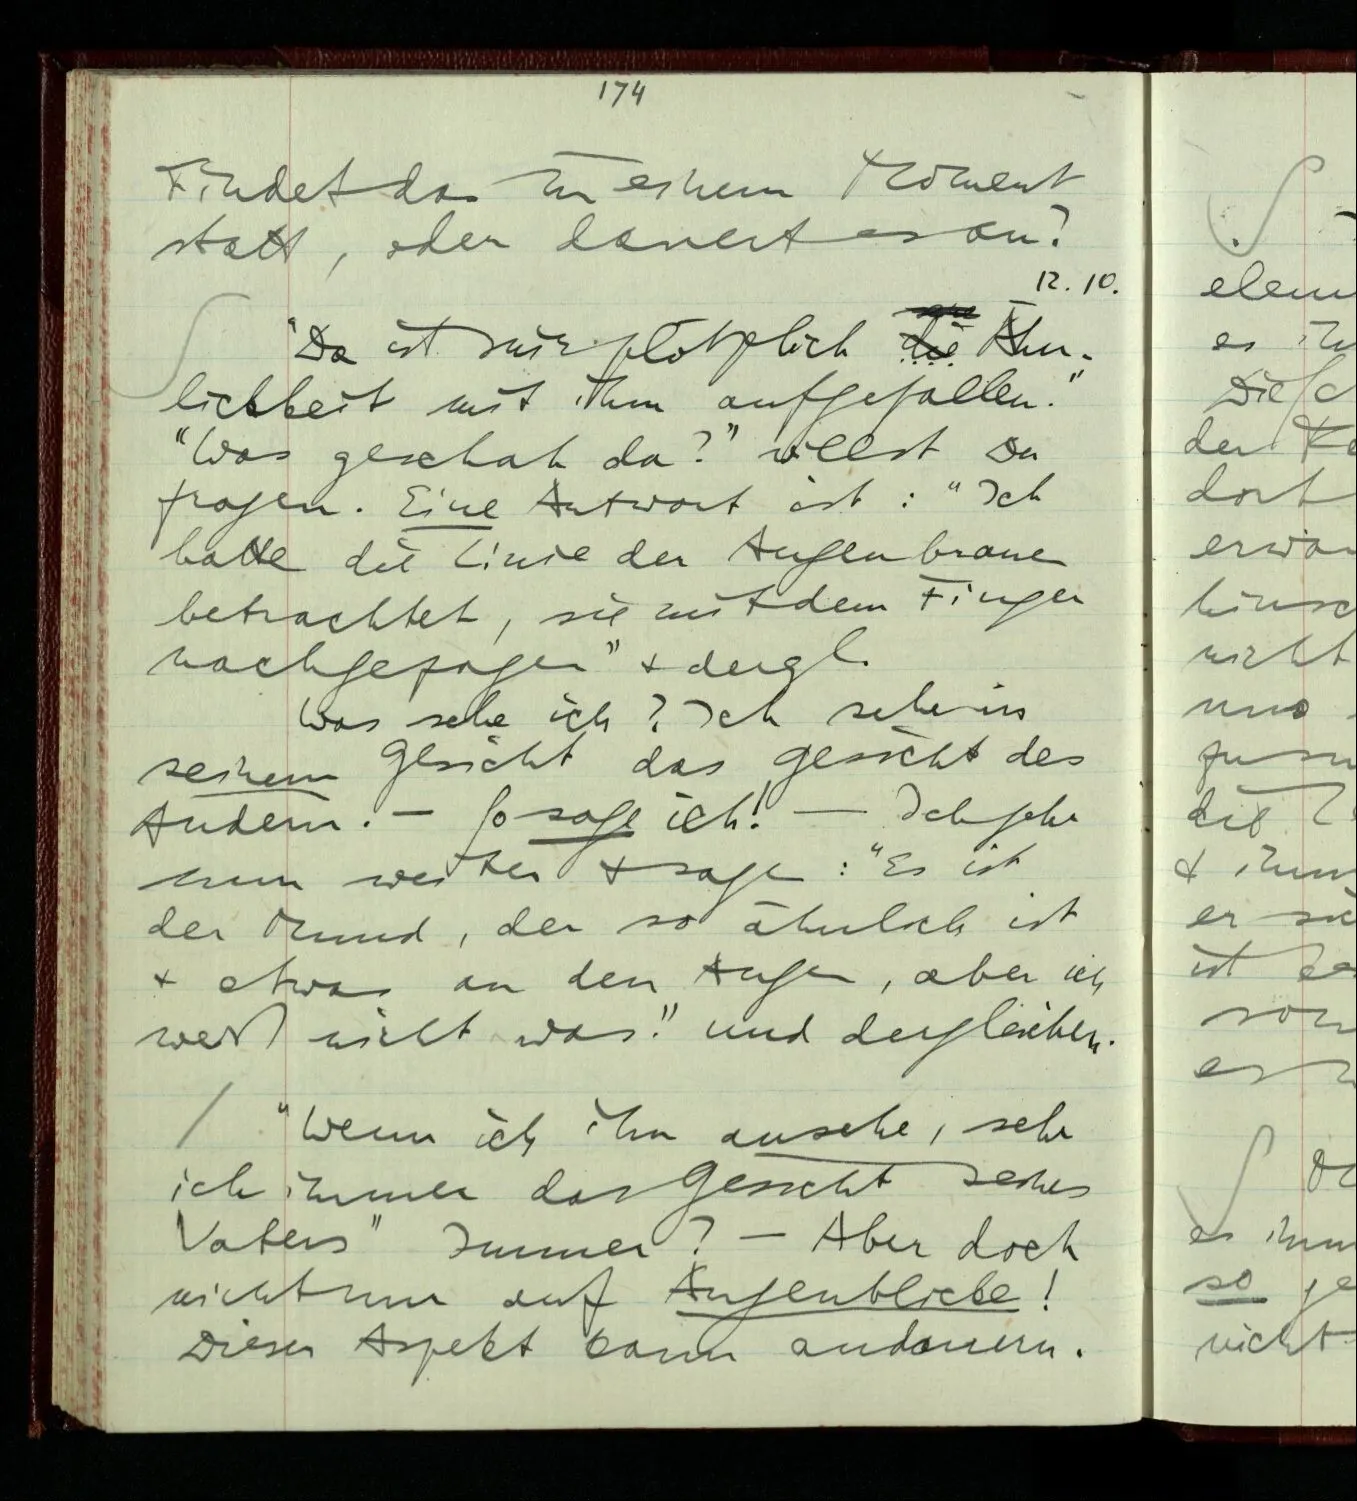 174
Findet das in einem Moment
statt, oder dauert es an?
12.10.
"Da ist mir plötzlich die Ähn-
lichkeit mit ihm aufgefallen."
"Was geschah da?" willst Du
fragen. Eine Antwort ist: "Ich
hatte die Linie der Augenbraue
betrachtet, sie mit dem Finger
nachgezogen" + dergl.
Was sehe ich? Ich sehe in
seinem Gesicht das Gesicht des
Andern. – So sage ich! – Ich sehe
nun weiter + sage: "Es ist
der Mund, der so ähnlich ist
+ etwas an den Augen, aber ich
weiß nicht was." und dergleichen.
/ "Wenn ich ihn ansehe, sehe
ich immer das Gesicht seines
Vaters" Immer? – Aber doch
nicht nur auf Augenblicke!
Dieser Aspekt kann andauern.
es
der
dort
nicht
die
er
ist
es
so
nicht